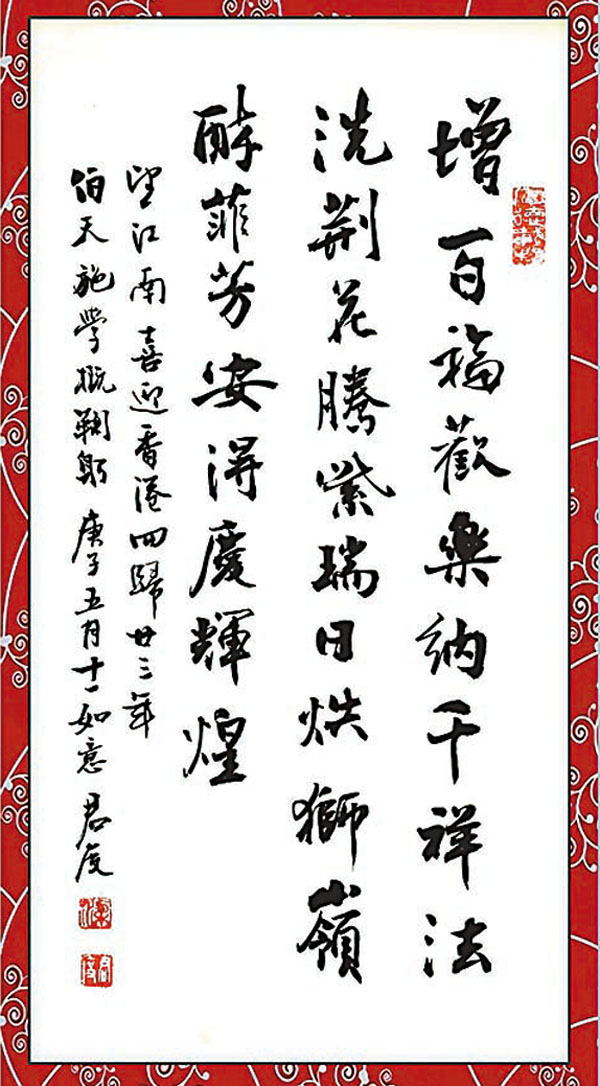 增百福歡樂納千祥法
洗荊花騰紫瑞日烘獅嶺
醉菲芳安得慶輝煌
望江南喜迎香港回歸廿三年
伯天施學概鞠躬庚子五月十一如意君度